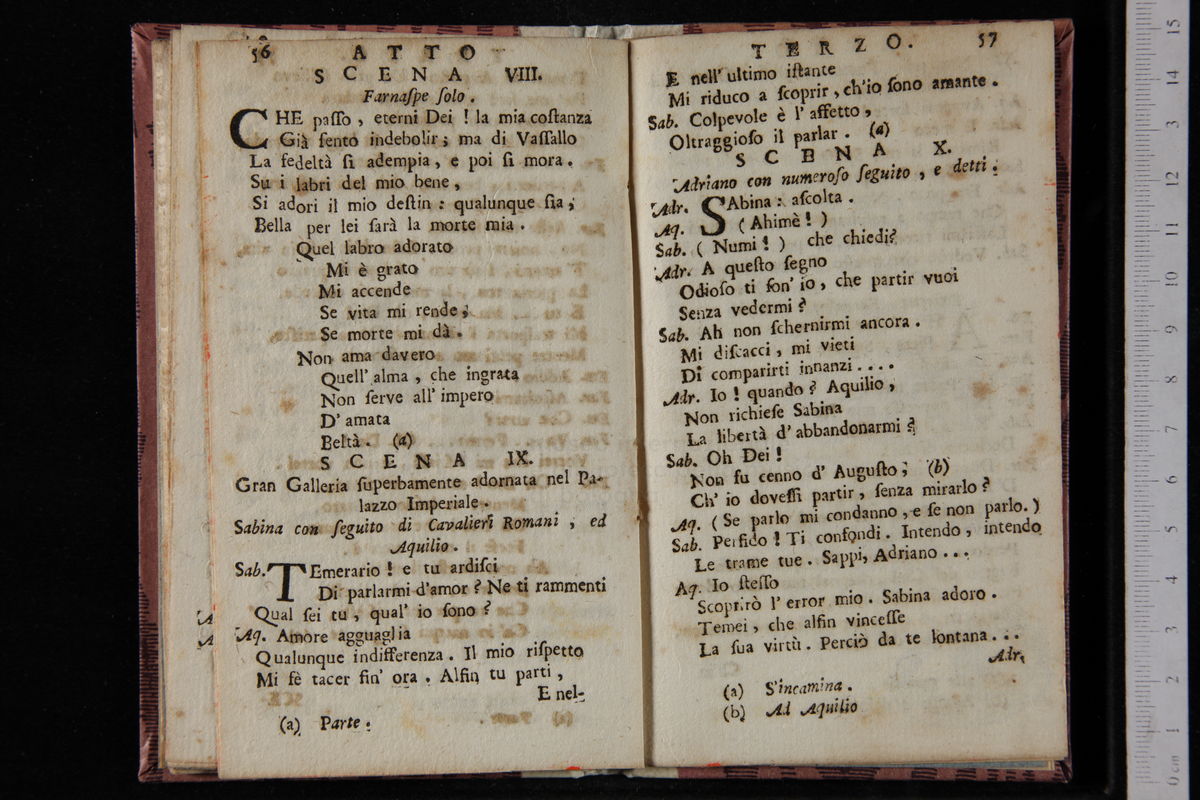 56 ATTO
SCENA VIII.
Farnaſpe ſolo.
CHE paſſo, eterni Dei! la mia coſtanza
Già ſento indebolir; ma di Vaſſallo
La fedeltà ſi adempia, e poi ſi mora.
Su i labri del mio bene,
Si adori il mio deſtin: qualunque ſia,
Bella per lei ſarà la morte mia.
Quel labro adorato
Mi è grato
Mi accende
Se vita mi rende;
Se morte mi dà.
Non ama davero
Quell' alma, che ingrata
Non ſerve all' impero
D' amata
Beltà. (a)
SCENA IX.
Gran Galleria ſuperbamente adornata nel Pa-
lazzo Imperiale.
Sabina con ſeguito di Cavalieri Romani, ed
Aquilio.
Sab. TEmerario! e tu ardiſci
Di parlarmi d'amor? Ne ti rammenti
Qual ſei tu, qual' io ſono?
Aq. Amore agguaglia
Qualunque indifferenza. Il mio riſpetto
Mi fè tacer fin' ora. Alfin tu parti,
E nel-
(a) Parte.
TERZO. 57
E nell' ultimo iſtante
Mi riduco a ſcoprir, ch'io ſono amante.
Sab. Colpevole è l' affetto,
Oltraggioſo il parlar. (a)
SCENA X.
Adriano con numeroſo ſeguito, e detti.
Adr. SAbina: aſcolta.
Aq. (Ahimè!)
Sab. (Numi!) che chiedi?
Adr. A queſto ſegno
Odioſo ti ſon' io, che partir vuoi
Senza vedermi?
Sab. Ah non ſchernirmi ancora.
Mi diſcacci, mi vieti
Di comparirti innanzi....
Adr. Io! quando? Aquilio,
Non richieſe Sabina
La libertà d' abbandonarmi?
Sab. Oh Dei!
Non fu cenno d' Auguſto; (b)
Ch' io doveſſi partir, ſenza mirarlo?
Aq. (Se parlo mi condanno, e ſe non parlo.)
Sab. Perfido! Ti confondi. Intendo, intendo
Le trame tue. Sappi, Adriano...
Aq. Io ſteſſo
Scoprirò l' error mio. Sabina adoro.
Temei, che alfin vinceſſe
La ſua virtù. Perciò da te lontana...
Adr.
(a) S'incamina.
(b) Ad Aquilio